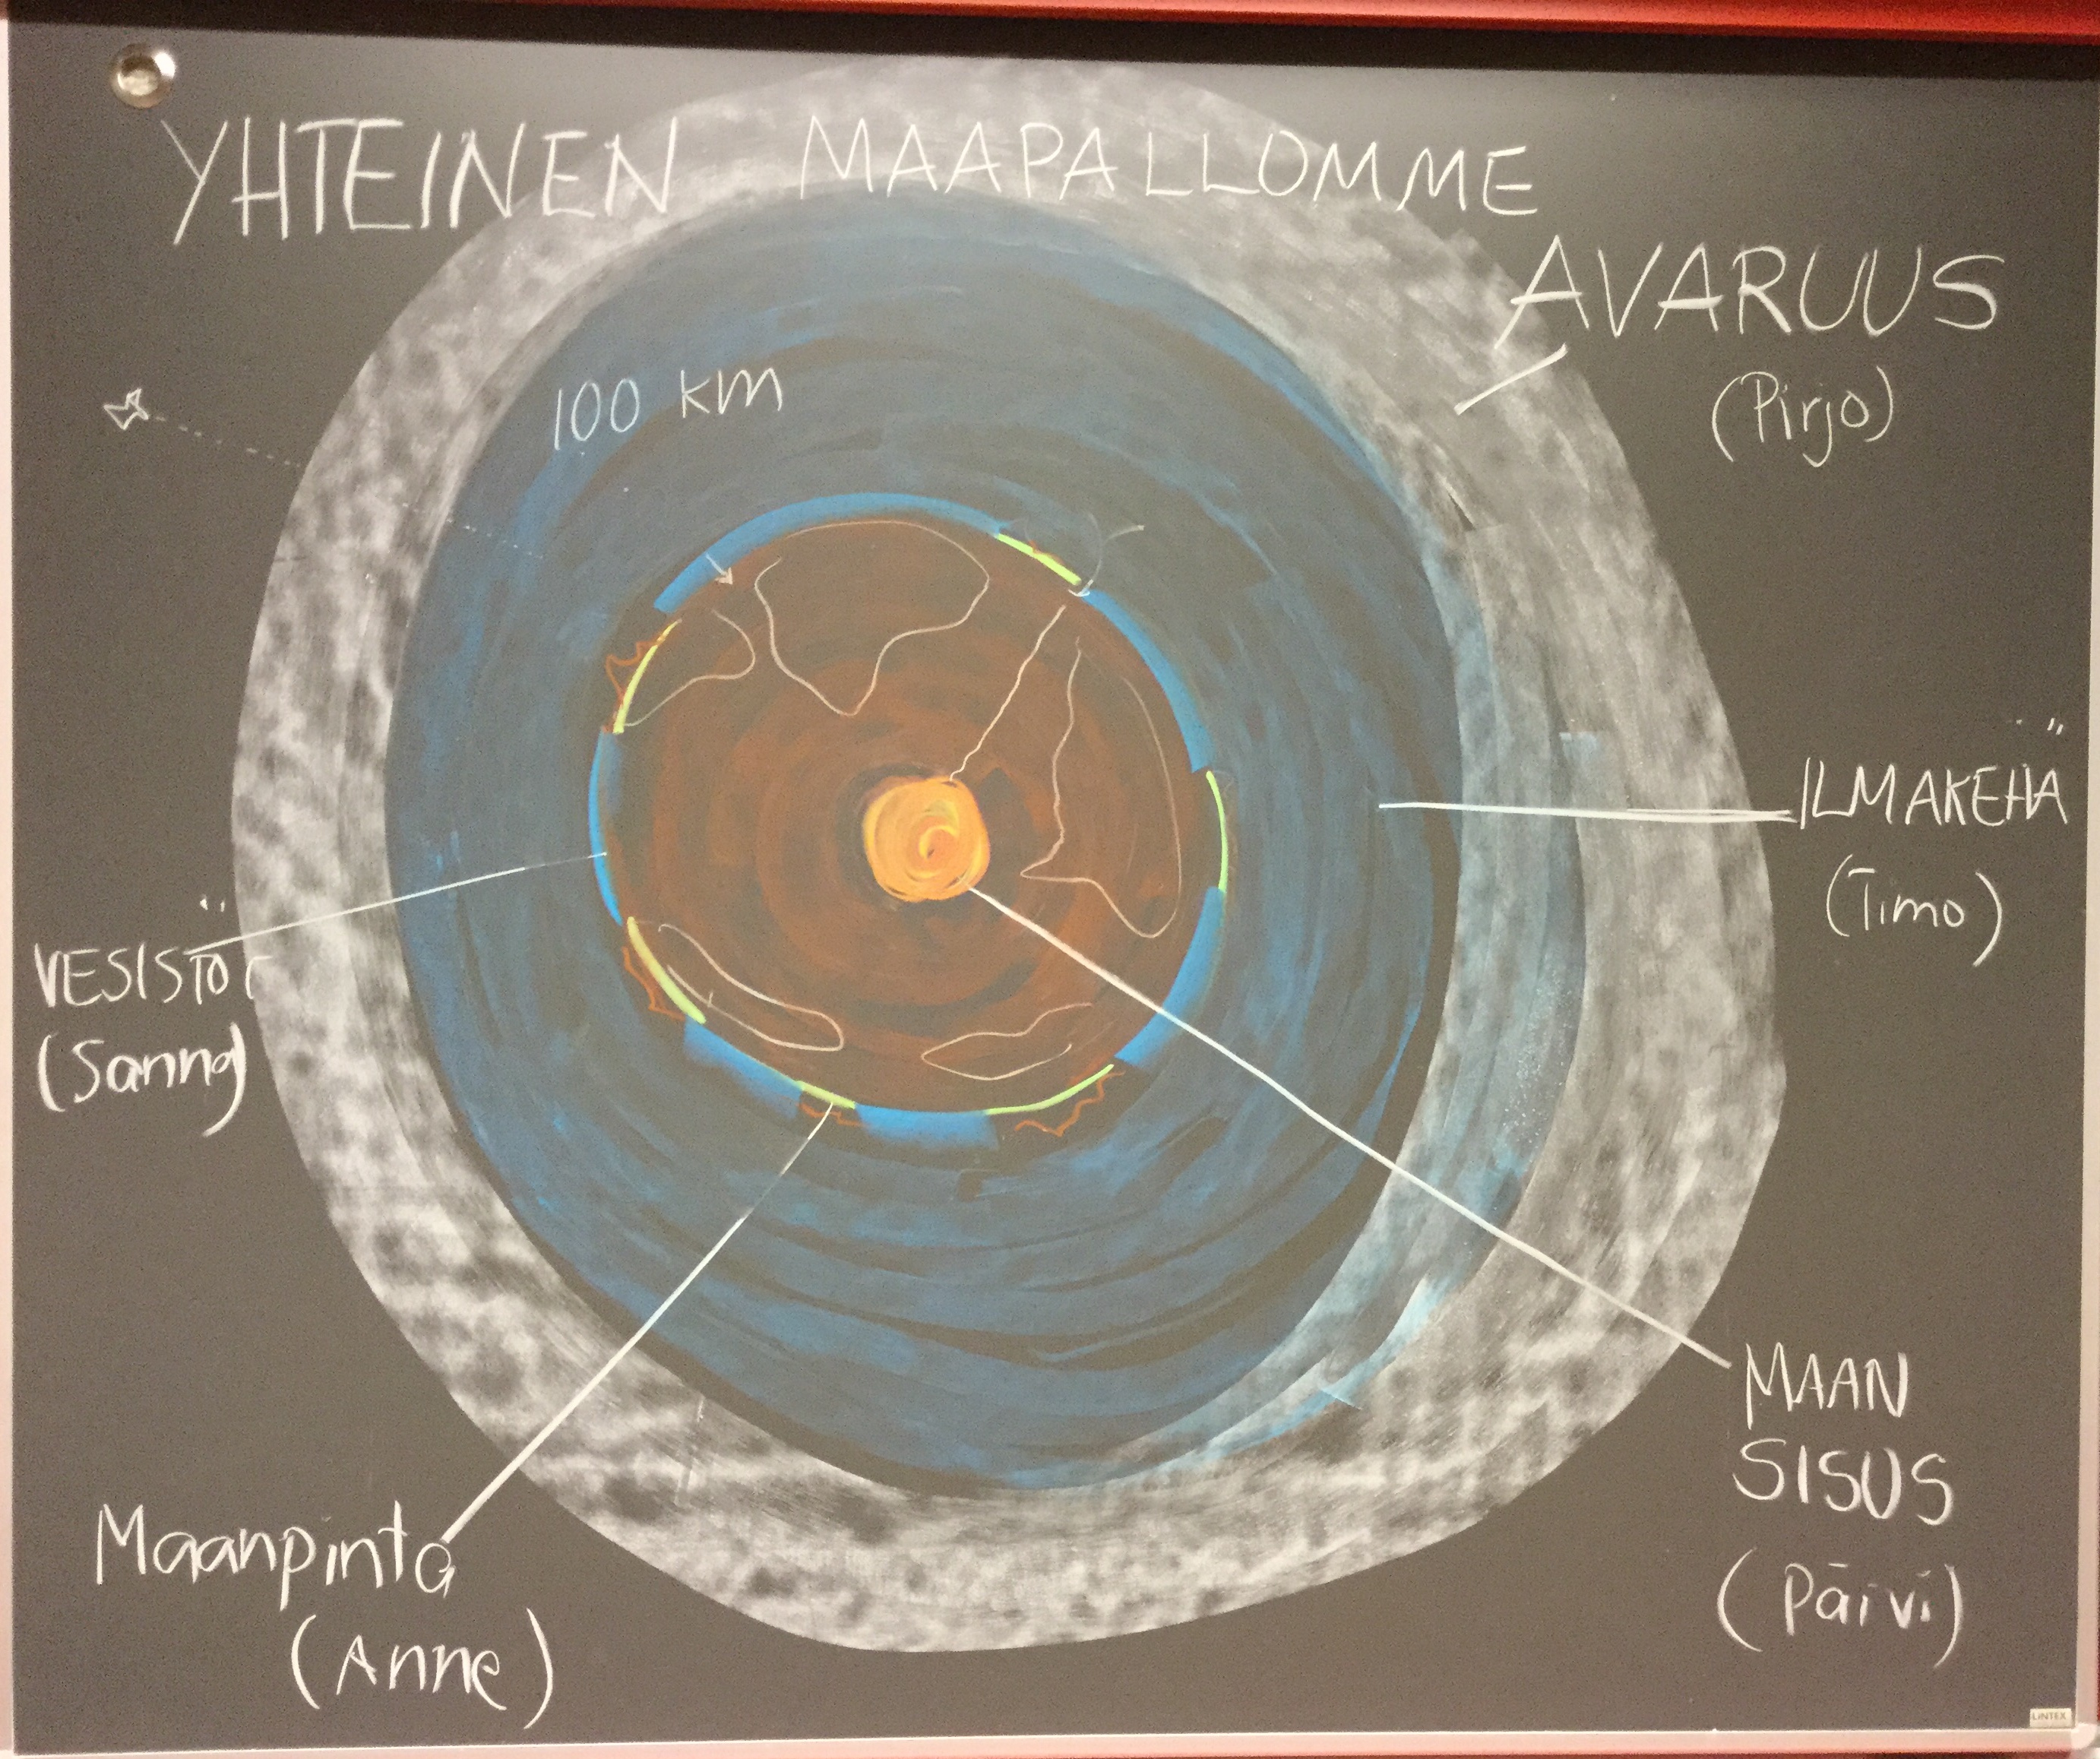 YHTEINEN MAAPALLOMME
AVARUUS
(Pirjo)
100 km
ILMAKEHÄ
(Timo)
VESISTÖT
(Sanna)
MAAN
SISUS
(Päivi)
Maanpinta
(Anne)
LINTEX